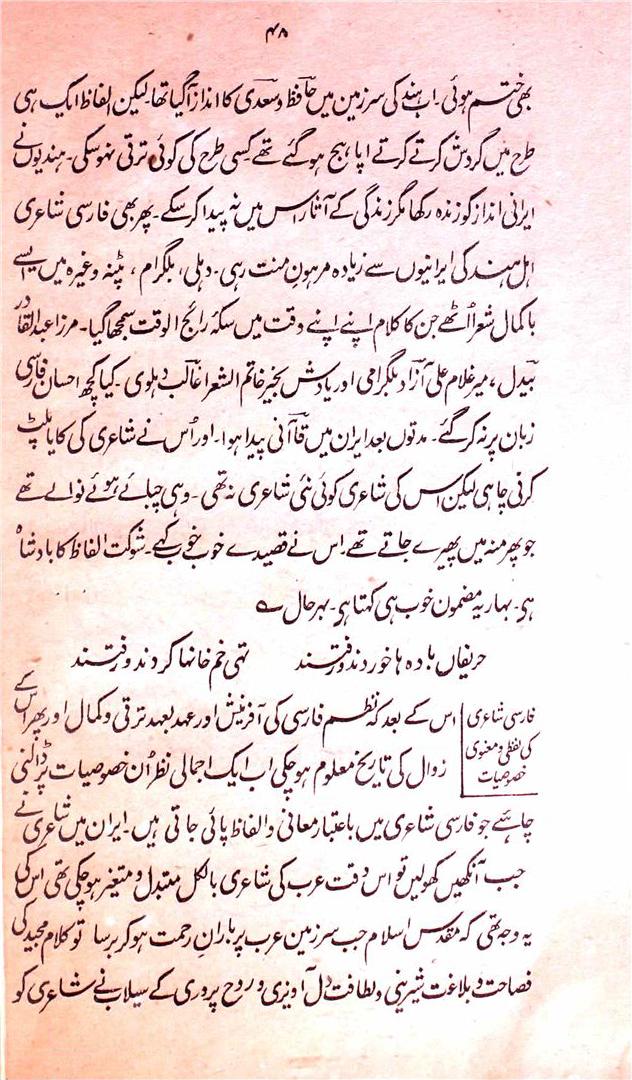 ۴۸
بھی ختم ہوئی۔ اب ہند کی سرزمین میں حافظ و سعدی کا انداز آگیا تھا۔ لیکن الفاظ ایک ہی
طرح میں گردش کرتے کرتے اپاہج ہو گئے تھے کسی طرح کی کوئی ترقی نہوسکی۔ ہندیوں نے
ایرانی انداز کو زندہ رکھا مگر زندگی کے آثار اس میں نہ پیدا کر سکے۔ پھر بھی فارسی شاعری
اہل ہند کی ایرانیوں سے زیادہ مرہونِ منت رہی۔ دہلی، بلگرام، پٹنہ وغیرہ میں ایسے
باکمال شعرا اُٹھے جن کا کلام اپنے اپنے وقت میں سکۂ رائج الوقت سمجھا گیا۔ مرزا عبدالقادر
بیدل، میر غلام علی آزاد بلگرامی اور یادش بخیر خاتم الشعرا غالب دہلوی۔ کیا کچھ احسان فارسی
زبان پر نہ کر گئے۔ مدتوں بعد ایران میں قاآنی پیدا ہوا۔ اور اُس نے شاعری کی کایا پلٹ
کرنی چاہی لیکن اس کی شاعری کوئی نئی شاعری نہ تھی۔ وہی چبائے ہوئے نوالے تھے
جو پھر منہ میں پھیرے جاتے تھے اس نے قصیدے خوب خوب کہے۔ شوکت الفاظ کا بادشاہ
ہی۔ بہاریہ مضمون خوب ہی کہتا ہی۔ بہر حال ؎
حریفاں بادہ ہا خوردند و رفتند تہی خم خانہا کردند و رفتند
فارسی شاعری
کی لفظی و معنوی
خصوصیات
اس کے بعد کہ نظم فارسی کی آفرینش اور عہد بعہد ترقی و کمال اور پھر اس کے
زوال کی تاریخ معلوم ہو چکی اب ایک اجمالی نظر اُن خصوصیات پر ڈالنی
چاہئے جو فارسی شاعری میں باعتبار معانی و الفاظ پائی جاتی ہیں۔ ایران میں شاعری نے
جب آنکھیں کھولیں تو اس وقت عرب کی شاعری بالکل مبتدل و متغیر ہو چکی تھی اس کی
یہ وجہ تھی کہ مقدس اسلام جب سرزمین عرب پر بارانِ رحمت ہو کر برسا تو کلام مجید کی
فصاحت و بلاغت شیرینی و لطافت دل آویزی و روح پروری کے سیلاب نے شاعری کو